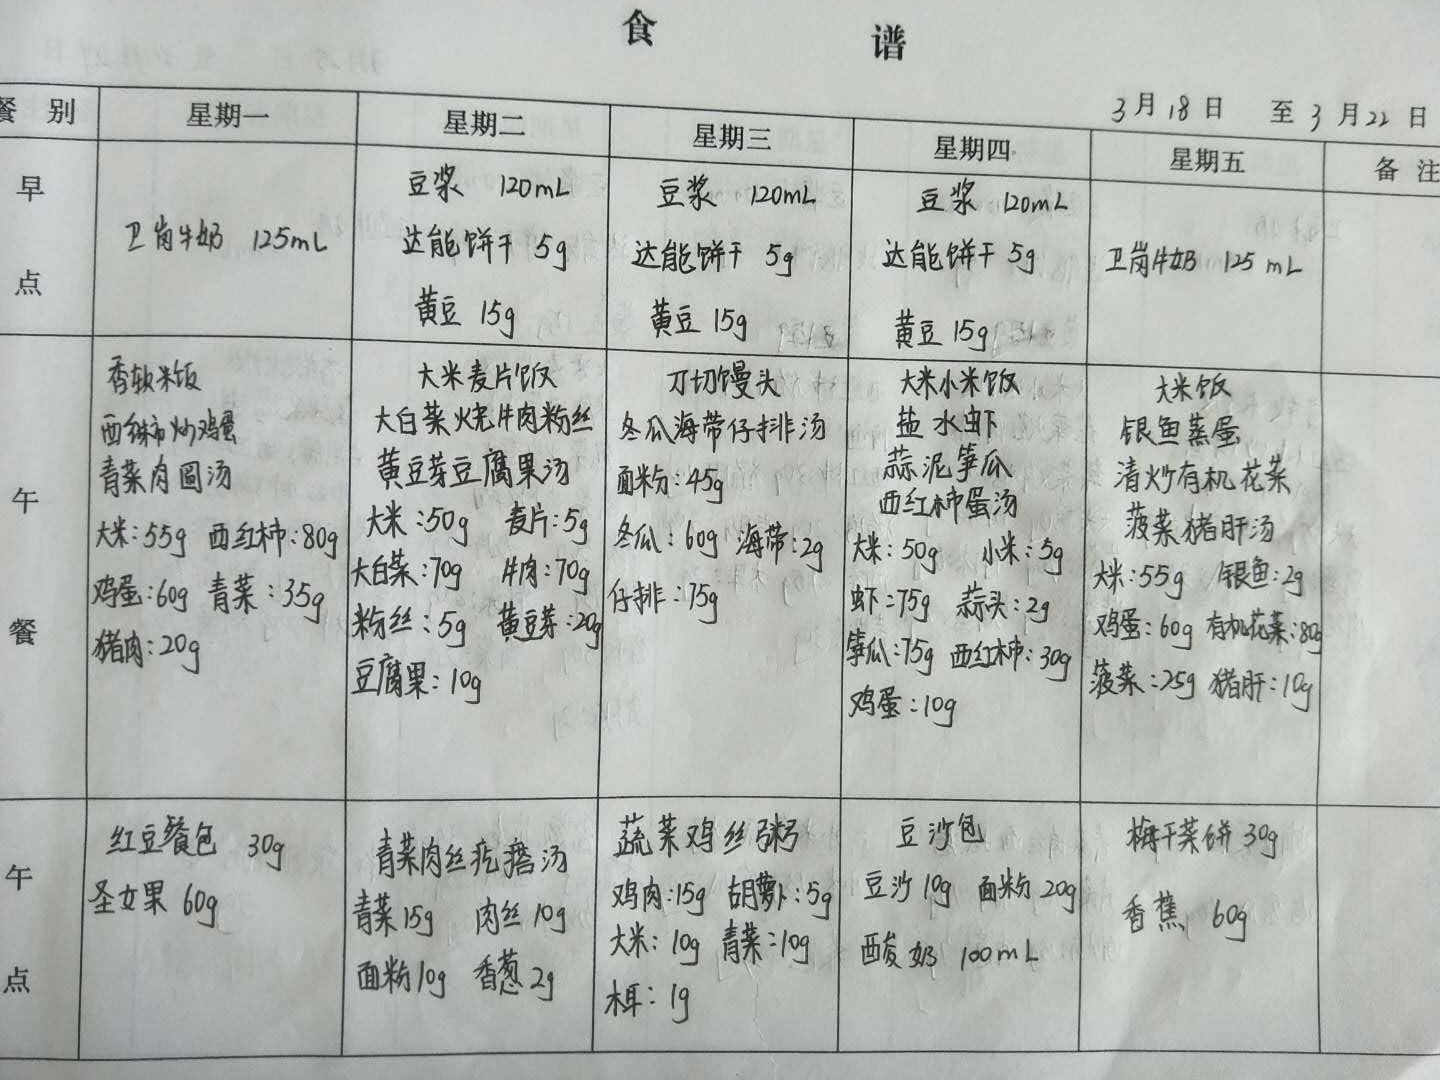 食 谱
3月18日 至3月22日
餐 别 星期一 星期二 星期三 星期四 星期五 备 注
早点
卫岗牛奶 125mL
豆浆 120mL
达能饼干 5g
黄豆 15g
豆浆 120mL
达能饼干 5g
黄豆 15g
豆浆 120mL
达能饼干 5g
黄豆 15g
卫岗牛奶 125mL
午餐
香软米饭
西红柿炒鸡蛋
青菜肉圆汤
大米:55g 西红柿:80g
鸡蛋:60g 青菜:35g
猪肉:20g
大米麦片饭
大白菜烧牛肉粉丝
黄豆芽豆腐果汤
大米:50g 麦片:5g
大白菜:70g 牛肉:70g
粉丝:5g 黄豆芽:20g
豆腐果:10g
刀切馒头
冬瓜海带仔排汤
面粉:45g
冬瓜:60g 海带:2g
仔排:75g
大米小米饭
盐水虾
蒜泥笋瓜
西红柿蛋汤
大米:50g 小米:5g
虾:75g 蒜头:2g
笋瓜:75g 西红柿:30g
鸡蛋:10g
大米饭
银鱼蒸蛋
清炒有机花菜
菠菜猪肝汤
大米:55g 银鱼:2g
鸡蛋:60g 有机花菜:80g
菠菜:25g 猪肝:10g
午点
红豆餐包 30g
圣女果 60g
青菜肉丝疙瘩汤
青菜15g 肉丝10g
面粉10g 香葱2g
蔬菜鸡丝粥
鸡肉:15g 胡萝卜:5g
大米:10g 青菜:10g
木耳:1g
豆沙包
豆沙10g 面粉20g
酸奶 100mL
梅干菜饼30g
香蕉 60g